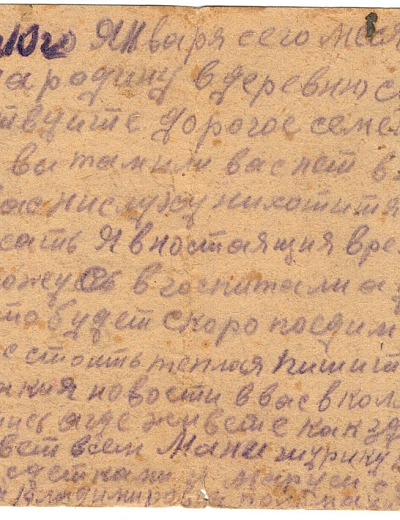 10го Января сего меся
на родину в деревню с
твуите дорогое семе
вы там или вас нет в
вас нислуху нихотитя
сать Я вностаящия вре
хожусь в госпитали а
то будет скоро поедим
стоить теплоя пишит
кия новости в вас вкол
ись а где живете как зд
вет всем Мани шурику
сдетками и маруси с
Владимировн